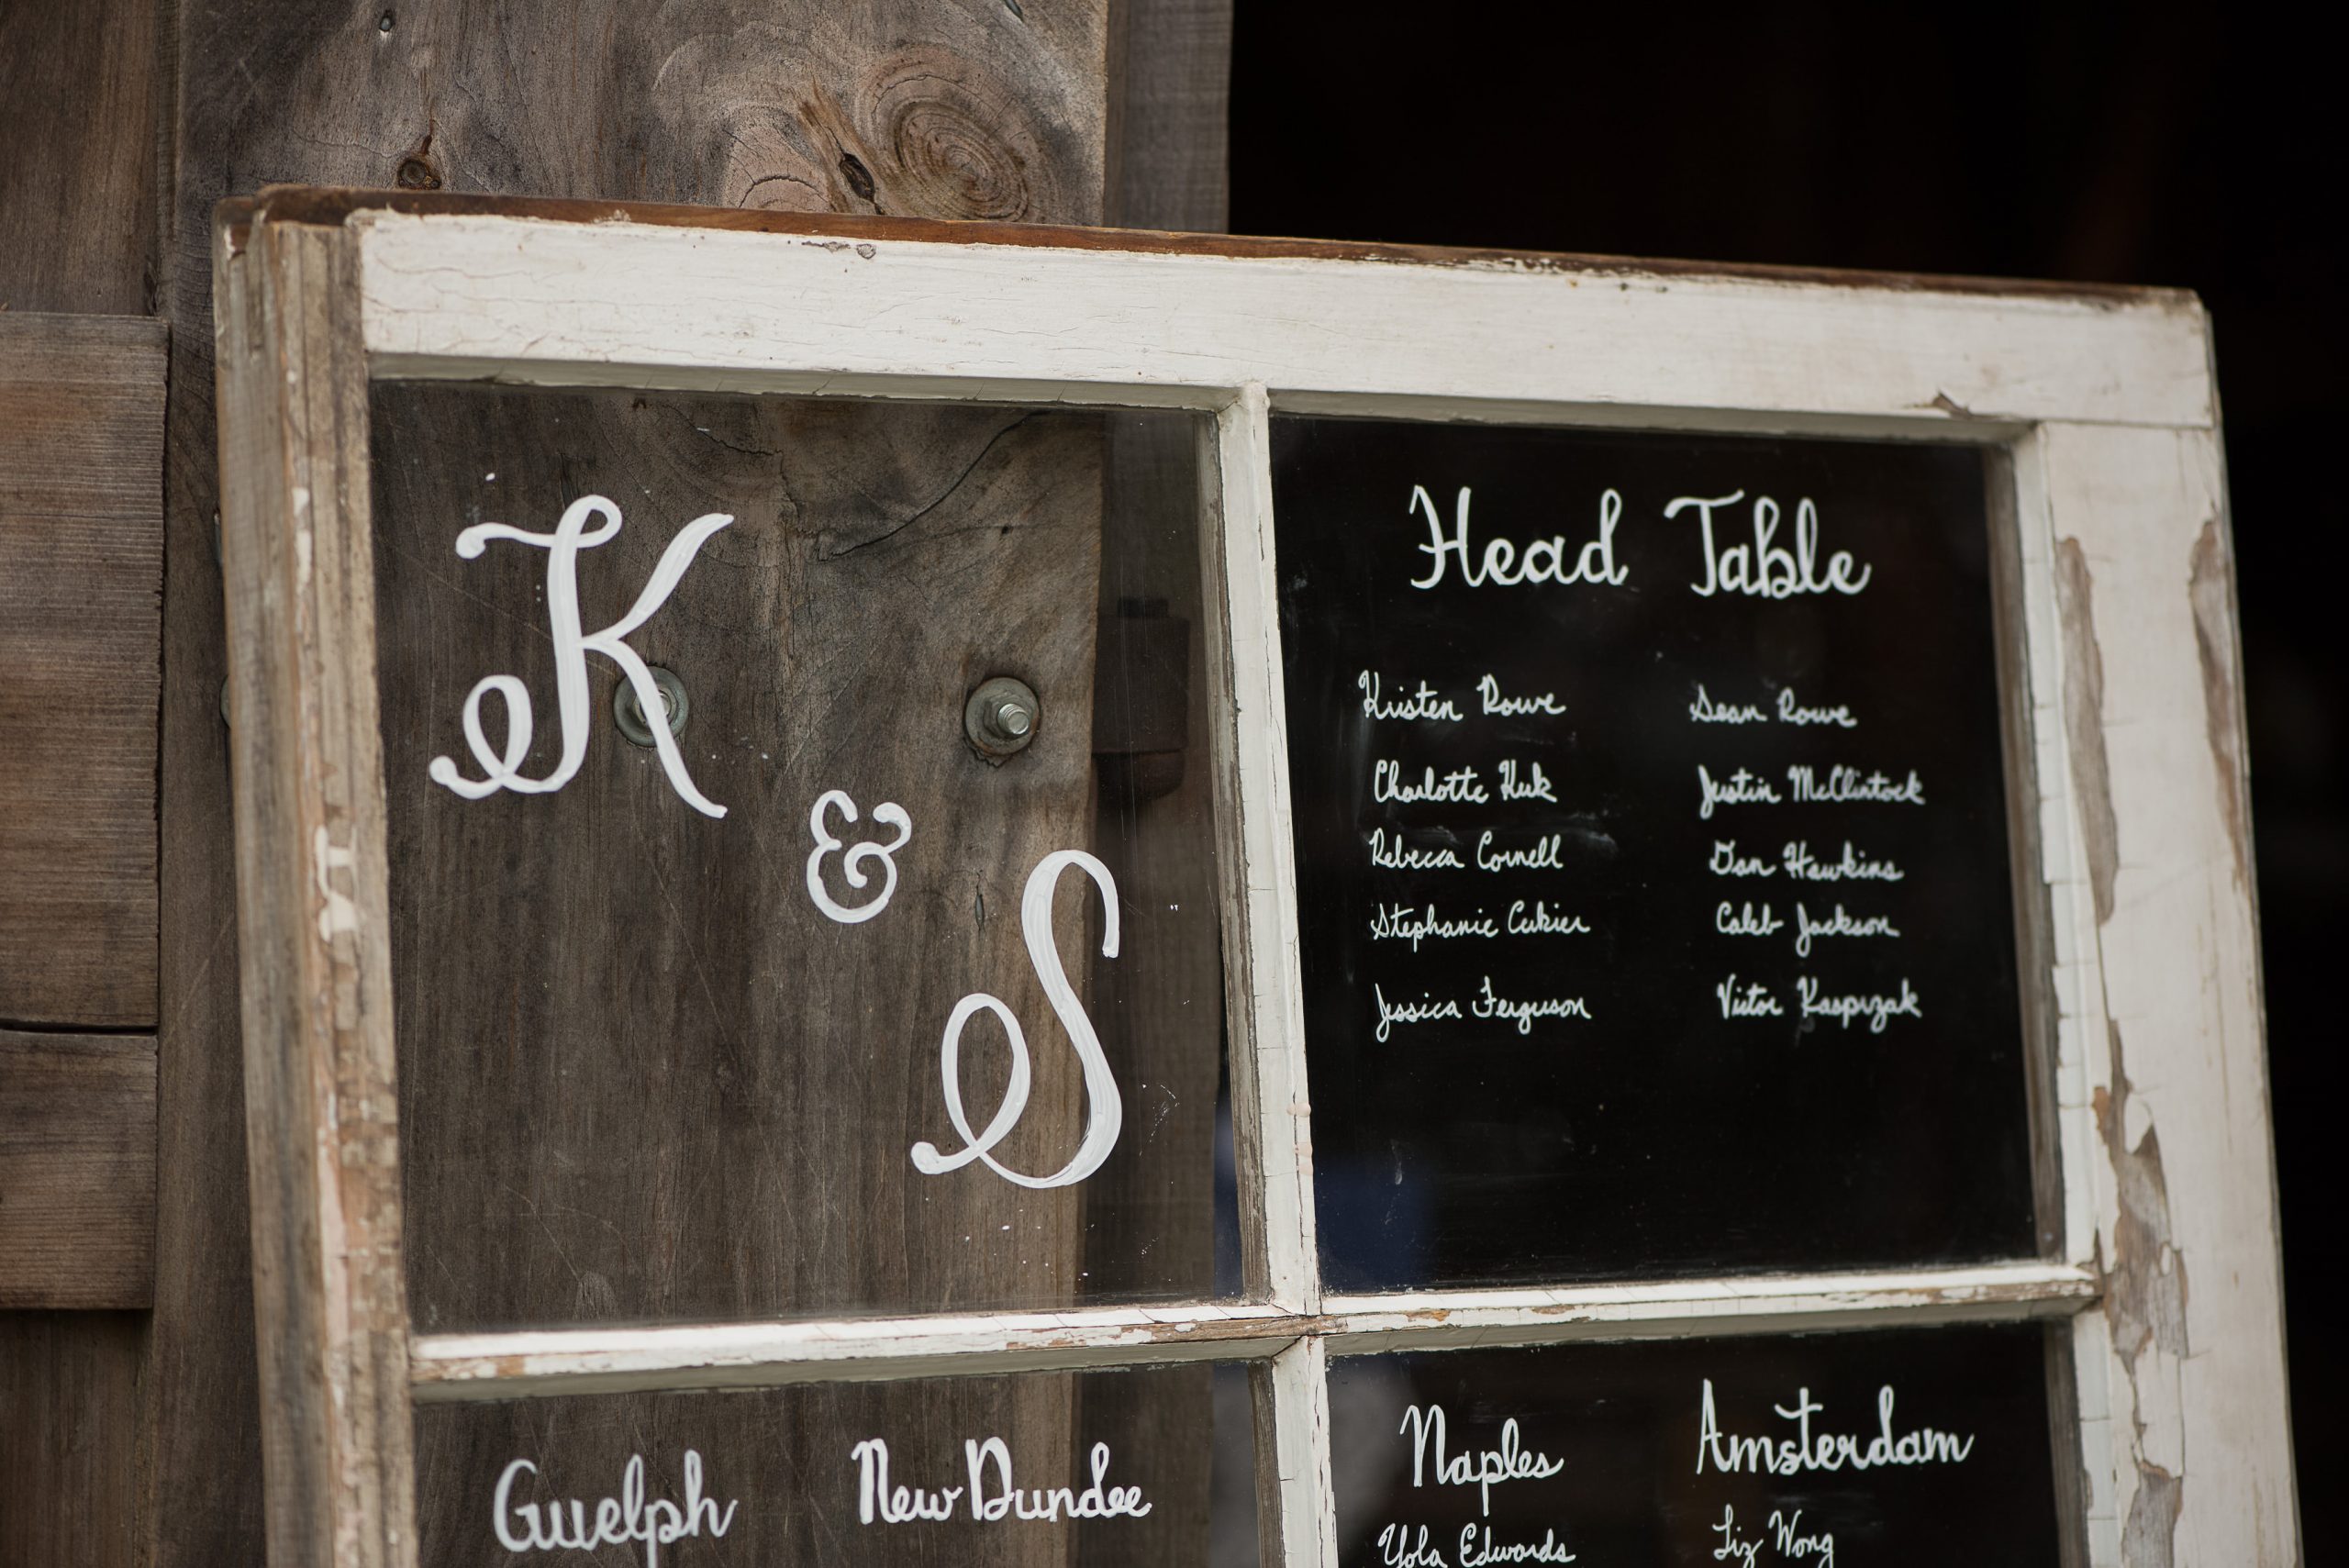 K
&
S
Head Table
Kristen Rowe
Sean Rowe
Charlotte Kuk
Justin McClintock
Rebecca Cornell
Dan Hawkins
Stephanie Cukier
Caleb Jackson
Jessica Ferguson
Victor Kasprzak
Guelph
New Dundee
Naples
Amsterdam
Yola Edwards
Liz Wong